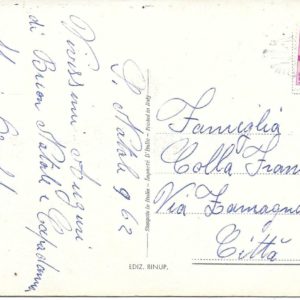 S. Natale 962
Vivissimi Auguri
di Buon Natale e Capodanno
Stampato in Italia – Imprimé D'Italie – Printed in Italy
EDIZ. RINUP.
Famiglia
Colla Fran
Via
Città